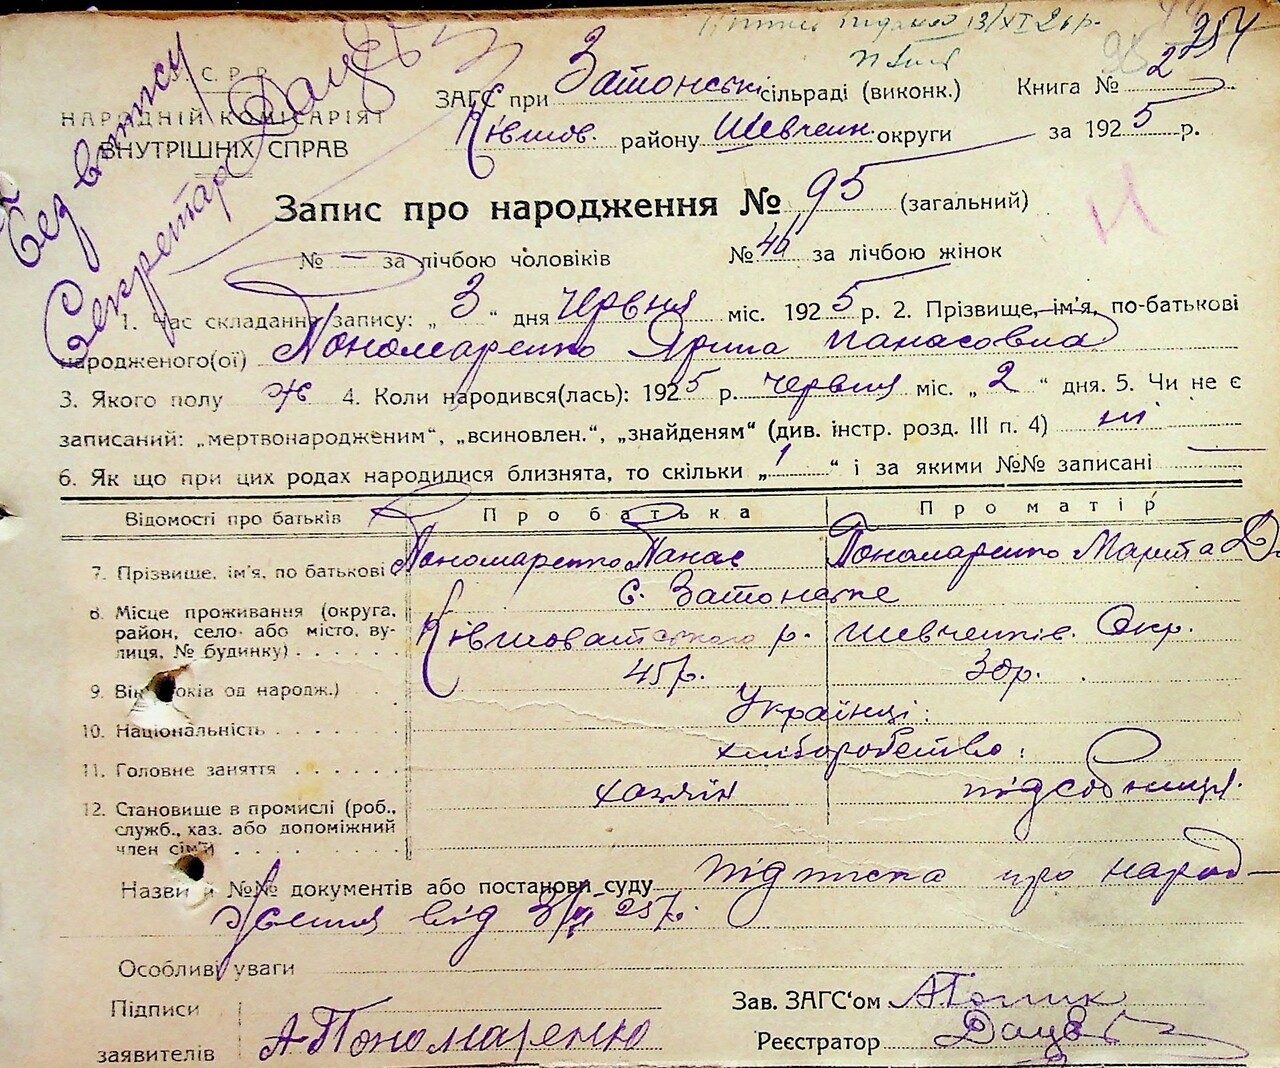 13/XI 26 р.
254
Без витягу
Секретар
С. Р. Р.
НАРОДНІЙ КОМІСАРІЯТ
ВНУТРІШНІХ СПРАВ
ЗАГС при Затонськ. сільраді (виконк.)
Книга № 2
Ківшов. району Шевченк. округи
за 1925 р.
Запис про народження № 95 (загальний)
№ — за лічбою чоловіків
№ 46 за лічбою жінок
1. Час складання запису: „ 3 “ дня червня міс. 1925 р. 2. Прізвище, ім'я, по-батькові
народженого(ої) Пономаренко Ярина Панасовна
3. Якого полу ж 4. Коли народився(лась): 1925 р. червня міс. „ 2 “ дня. 5. Чи не є
записаний: „мертвонародженим“, „всиновлен.“, „знайденям“ (див. інстр. розд. III п. 4) ні
6. Як що при цих родах народилися близнята, то скільки „ 1 “ і за якими №№ записані
Відомості про батьків
Про батька
Про матір
7. Прізвище, ім'я, по батькові Пономаренко Панас
Пономаренко Марина
8. Місце проживання (округа, район, село або місто, вулиця, № будинку)
с. Затонське
Ківшоватського р. Шевченків. Окр.
9. Вік (років од народж.)
45 р.
30 р.
10. Національність
Українці
11. Головне заняття
хліборобство
12. Становище в промислі (роб., служб., хаз. або допоміжний член сім'ї)
хазяїн
підсобниця
Назви й №№ документів або постанови суду підписка про народ-
ження від 3/VI 25 р.
Особливі уваги
Підписи
заявителів А Пономаренко
Зав. ЗАГС‘ом
Реєстратор